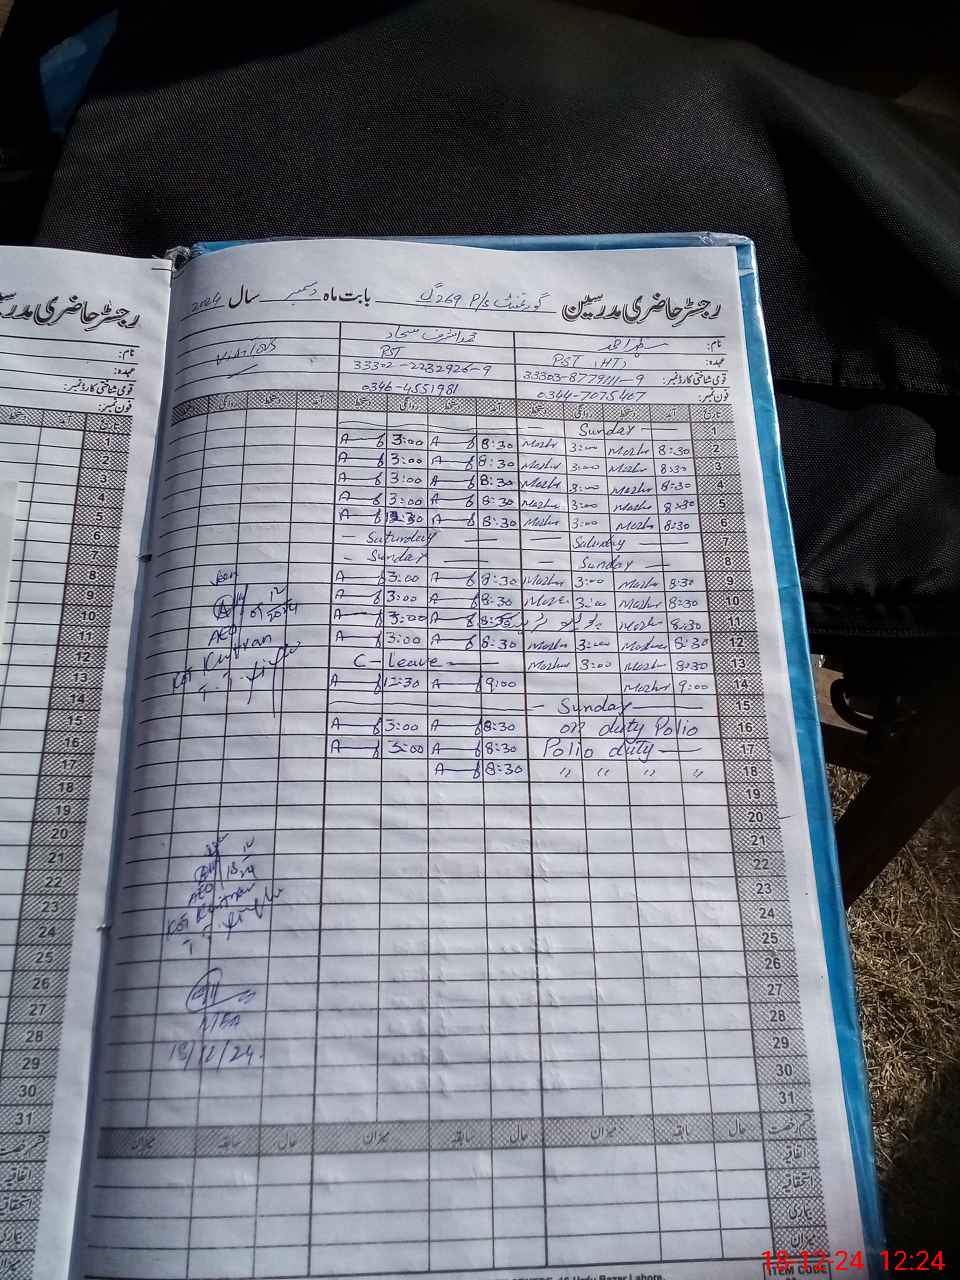 رجسٹر حاضری مدرسین گورنمنٹ P/S 269 گ ب بابت ماہ دسمبر سال 2024
نام:
عہدہ: PST (HT) PST Visitors
قومی شناختی کارڈ نمبر: 33303-8779111-9 33302-2232926-9
فون نمبر: 0344-7075407 0346-4551981
تاریخ آمد دستخط روانگی دستخط آمد دستخط روانگی دستخط
1 Sunday
2 8:30 Mazhr 3:00 Mazhr 8:30 A 3:00 A
3 8:30 Mazhr 3:00 Mazhr 8:30 A 3:00 A
4 8:30 Mazhr 3:00 Mazhr 8:30 A 3:00 A
5 8:30 Mazhr 3:00 Mazhr 8:30 A 3:00 A
6 8:30 Mazhr 3:00 Mazhr 8:30 A A
7 Saturday Saturday
8 Sunday Sunday
9 8:30 Mazhr 3:00 Mazhr 8:30 A 3:00 A
10 8:30 Mazhr 3:00 8:30 A 3:00 A
11 8:30 Mazhr 8:30 A 3:00 A
12 8:30 3:00 Mazhr 8:30 A 3:00 A
13 8:30 Mazhr 3:00 Mazhr C-Leave
14 9:00 Mazhr 9:00 A 12:30 A
15 Sunday
16 on duty Polio 8:30 A 3:00 A
17 Polio duty 8:30 A 3:00 A
18 〃 〃 〃 〃 8:30 A
19
20
21
22
23
24
25
26
27
28
29
30
31
Seen
AEO
T.T.Singh
AEO
T.T.Singh
MEA
18/12/24
قسم رخصت حال سابقہ میزان حال سابقہ میزان حال سابقہ میزان
اتفاقیہ
استحقاقیہ
بیماری
میزان
Urdu Bazar Lahore.
ITEM CODE
رجسٹر حاضری
نام:
عہدہ:
قومی شناختی کارڈ نمبر:
فون نمبر:
تاریخ آمد دستخط
1
2
3
4
5
6
7
8
9
10
11
12
13
14
15
16
17
18
19
20
21
22
23
24
25
26
27
28
29
30
31
قسم رخصت
اتفاقیہ
استحقاقیہ
بیماری
میزان
18-12-24 12:24